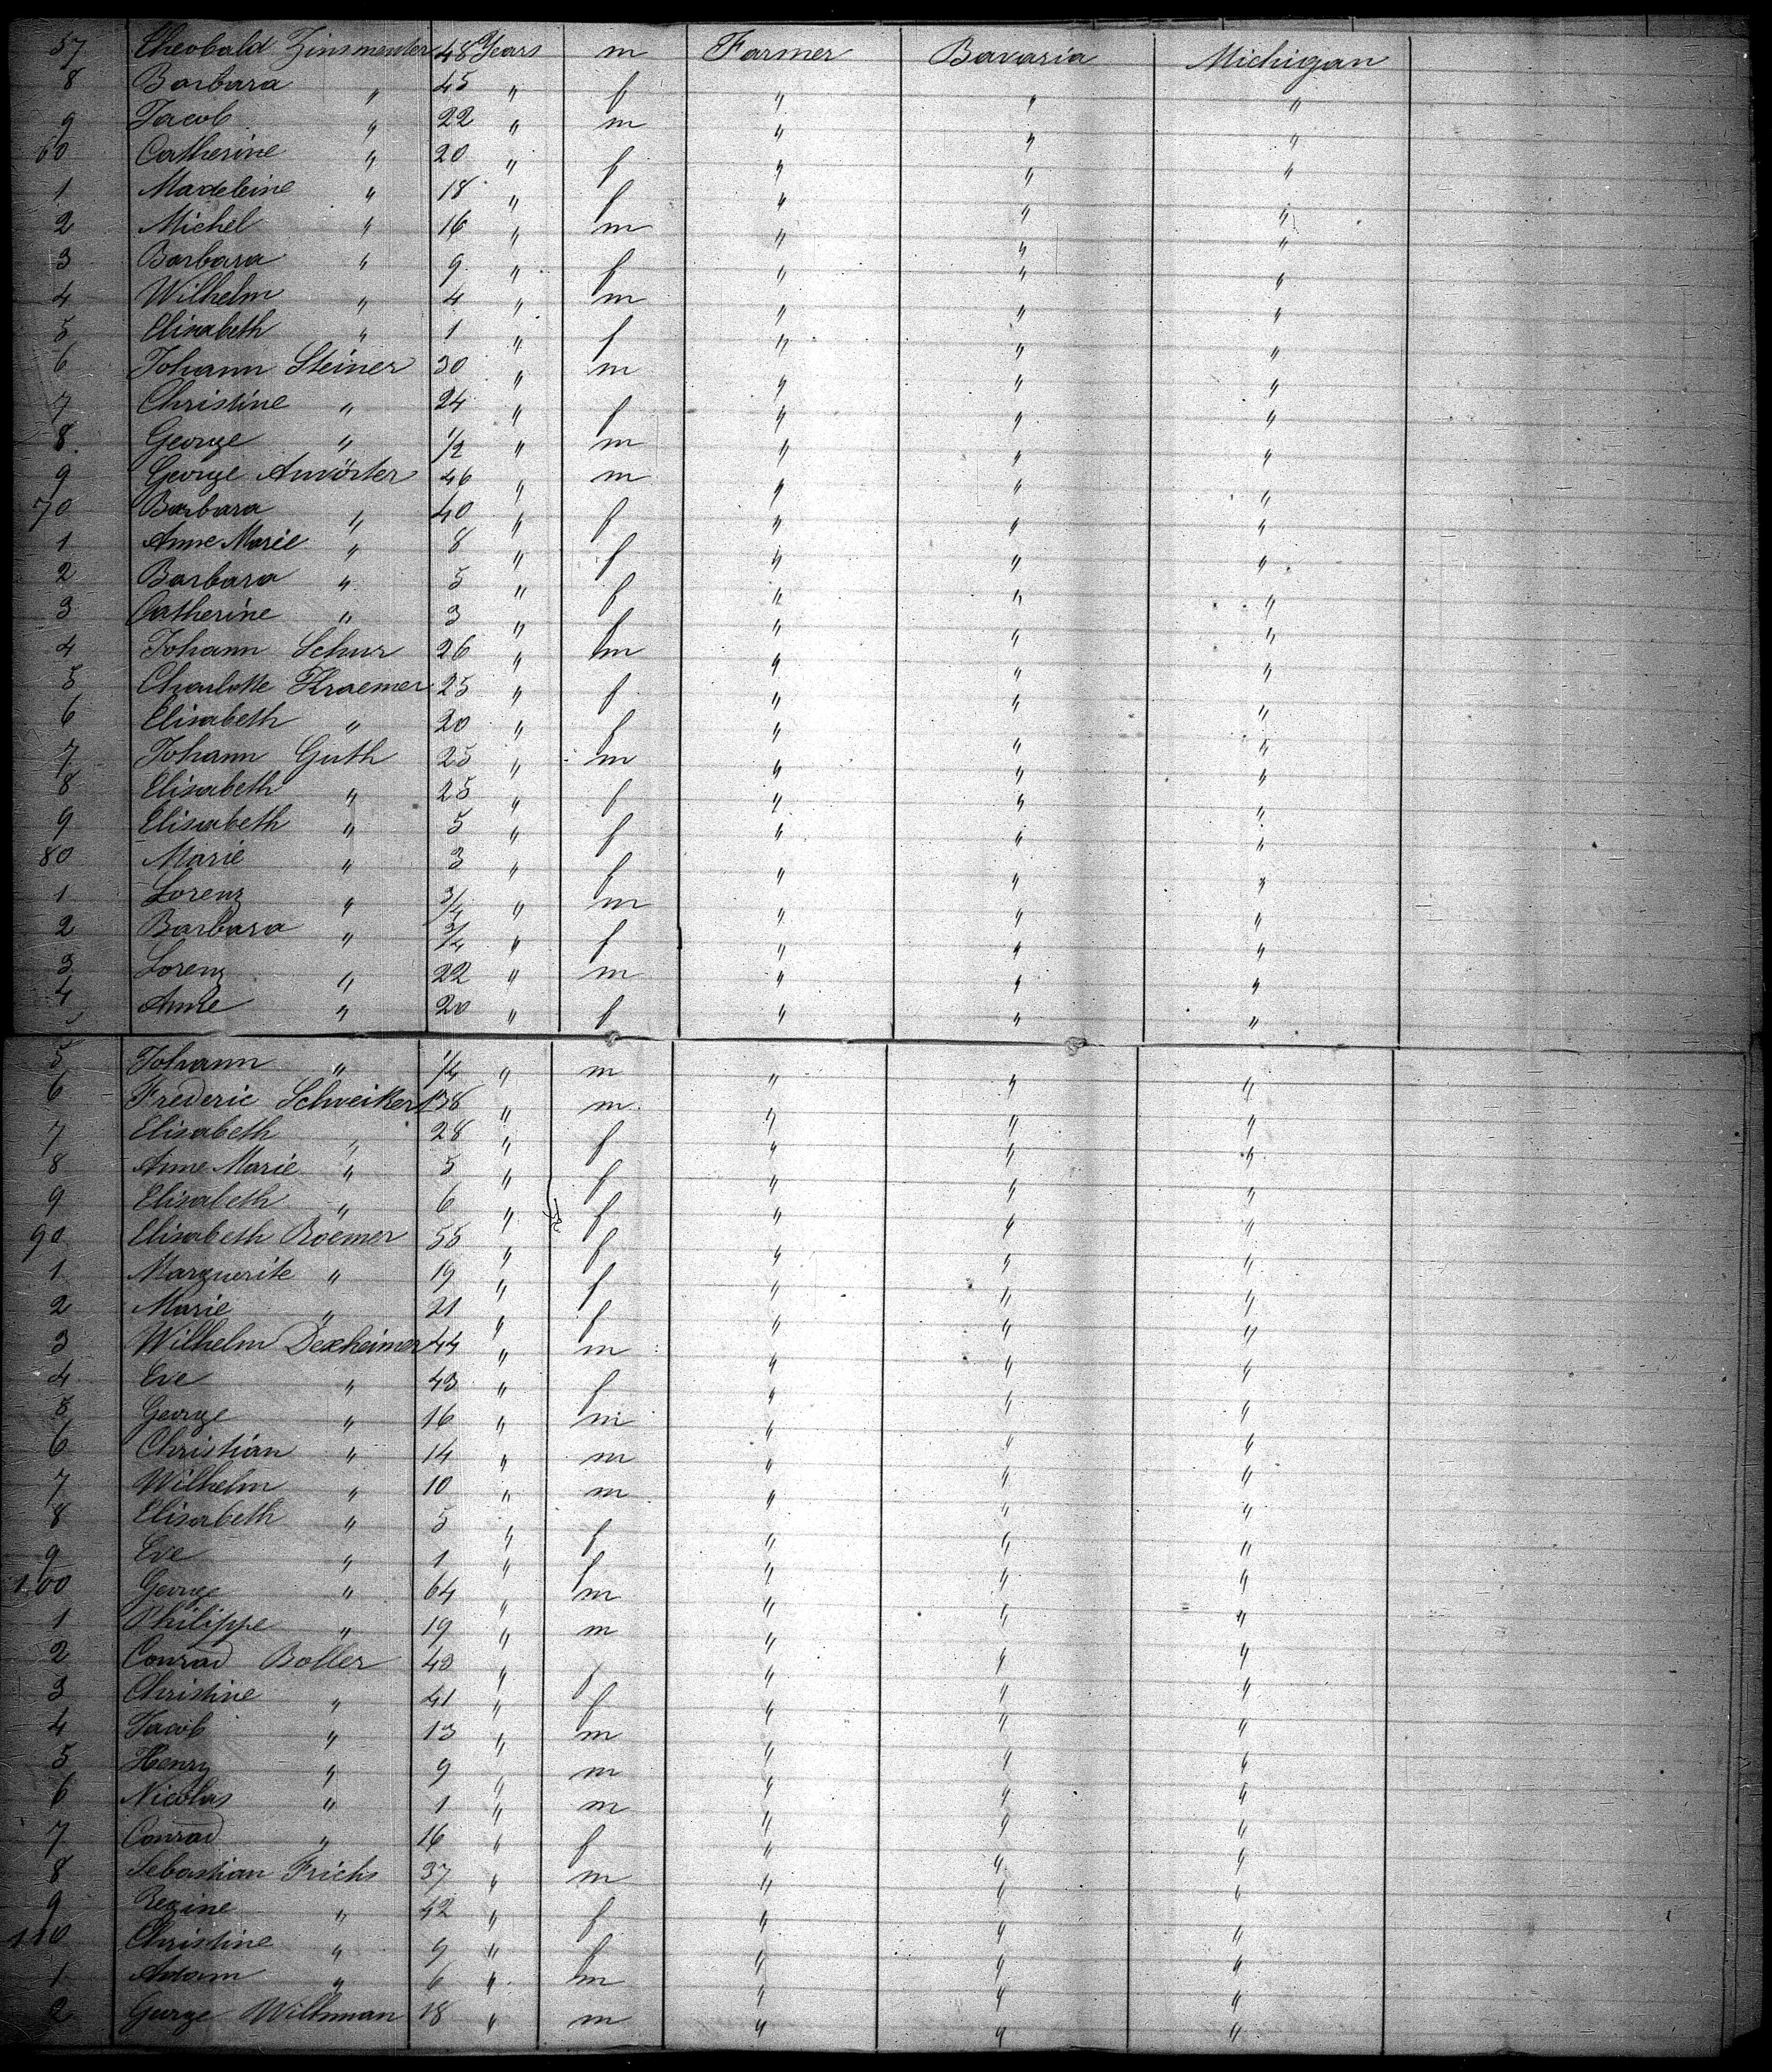 57 Theobald Zinsmenter 48 Years m Farmer Bavaria Michigan
8 Barbara " 45 " f " " "
9 Jacob " 22 " m " " "
60 Catherine " 20 " f " " "
1 Madeleine " 18 " f " " "
2 Michel " 16 " m " " "
3 Barbara " 9 " f " " "
4 Wilhelm " 4 " m " " "
5 Elisabeth " 1 " f " " "
6 Johann Steiner 30 " m " " "
7 Christine " 24 " f " " "
8 George " 1/2 " m " " "
9 George Anwörter 46 " m " " "
70 Barbara " 40 " f " " "
1 Anne Marie " 8 " f " " "
2 Barbara " 5 " f " " "
3 Catherine " 3 " f " " "
4 Johann Schur 26 " m " " "
5 Charlotte Kraemer 25 " f " " "
6 Elisabeth " 20 " f " " "
7 Johann Guth 25 " m " " "
8 Elisabeth " 25 " f " " "
9 Elisabeth " 5 " f " " "
80 Marie " 3 " f " " "
1 Lorenz " 3/4 " m " " "
2 Barbara " 3/4 " f " " "
3 Lorenz " 22 " m " " "
4 Anne " 20 " f " " "
5 Johann " 1/4 " m " " "
6 Frederic Schweikert 38 " m " " "
7 Elisabeth " 28 " f " " "
8 Anne Marie " 5 " f " " "
9 Elisabeth " 6 " f " " "
90 Elisabeth Roemer 55 " f " " "
1 Marguerite " 19 " f " " "
2 Marie " 21 " f " " "
3 Wilhelm Dexheimer 44 " m " " "
4 Eve " 43 " f " " "
5 George " 16 " m " " "
6 Christian " 14 " m " " "
7 Wilhelm " 10 " m " " "
8 Elisabeth " 5 " f " " "
9 Eve " 1 " f " " "
100 George " 64 " m " " "
1 Philippe " 19 " m " " "
2 Conrad Boller 43 " f " " "
3 Christine " 41 " f " " "
4 Jacob " 13 " m " " "
5 Henry " 9 " m " " "
6 Nicolas " 1 " m " " "
7 Conrad " 16 " f " " "
8 Sebastian Frichs 37 " m " " "
9 Regine " 42 " f " " "
110 Christine " 9 " f " " "
1 Adam " 6 " m " " "
2 George Willnman 18 " m " " "